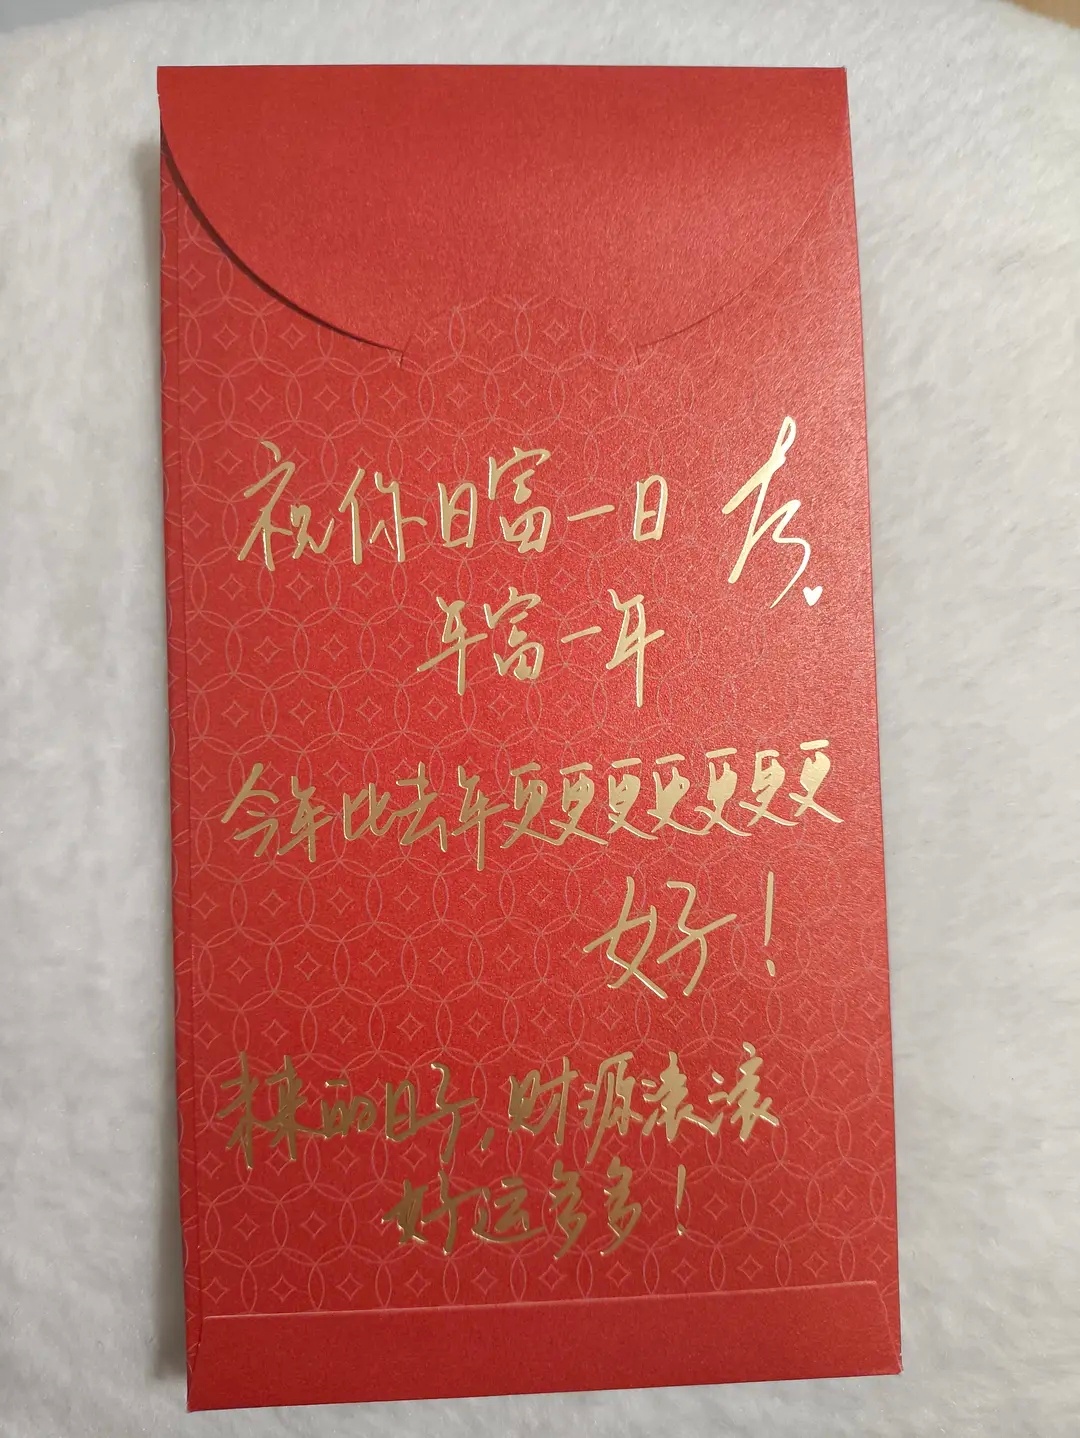 祝你日富一日
年富一年
今年比去年更更更更更更更
好！
未来的日子，财源滚滚
好运多多！